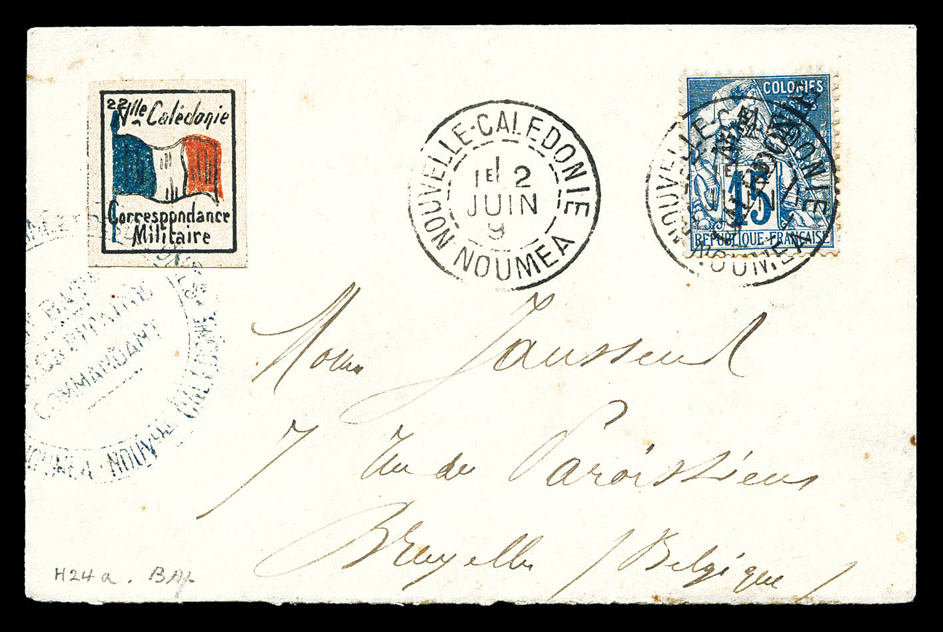 22
Nlle Calédonie
Correspondance
Militaire
NOUVELLE-CALEDONIE
1E 2
JUIN
9
NOUMEA
COLONIES
POSTES
15
REPUBLIQUE-FRANÇAISE
NOUMEA
CAPITAINE
COMMANDANT
NOUMEA - NOUVELLE CALEDONIE
7 Rue des Paroissiens
Bruxelles / Belgique /
H24a. BAL